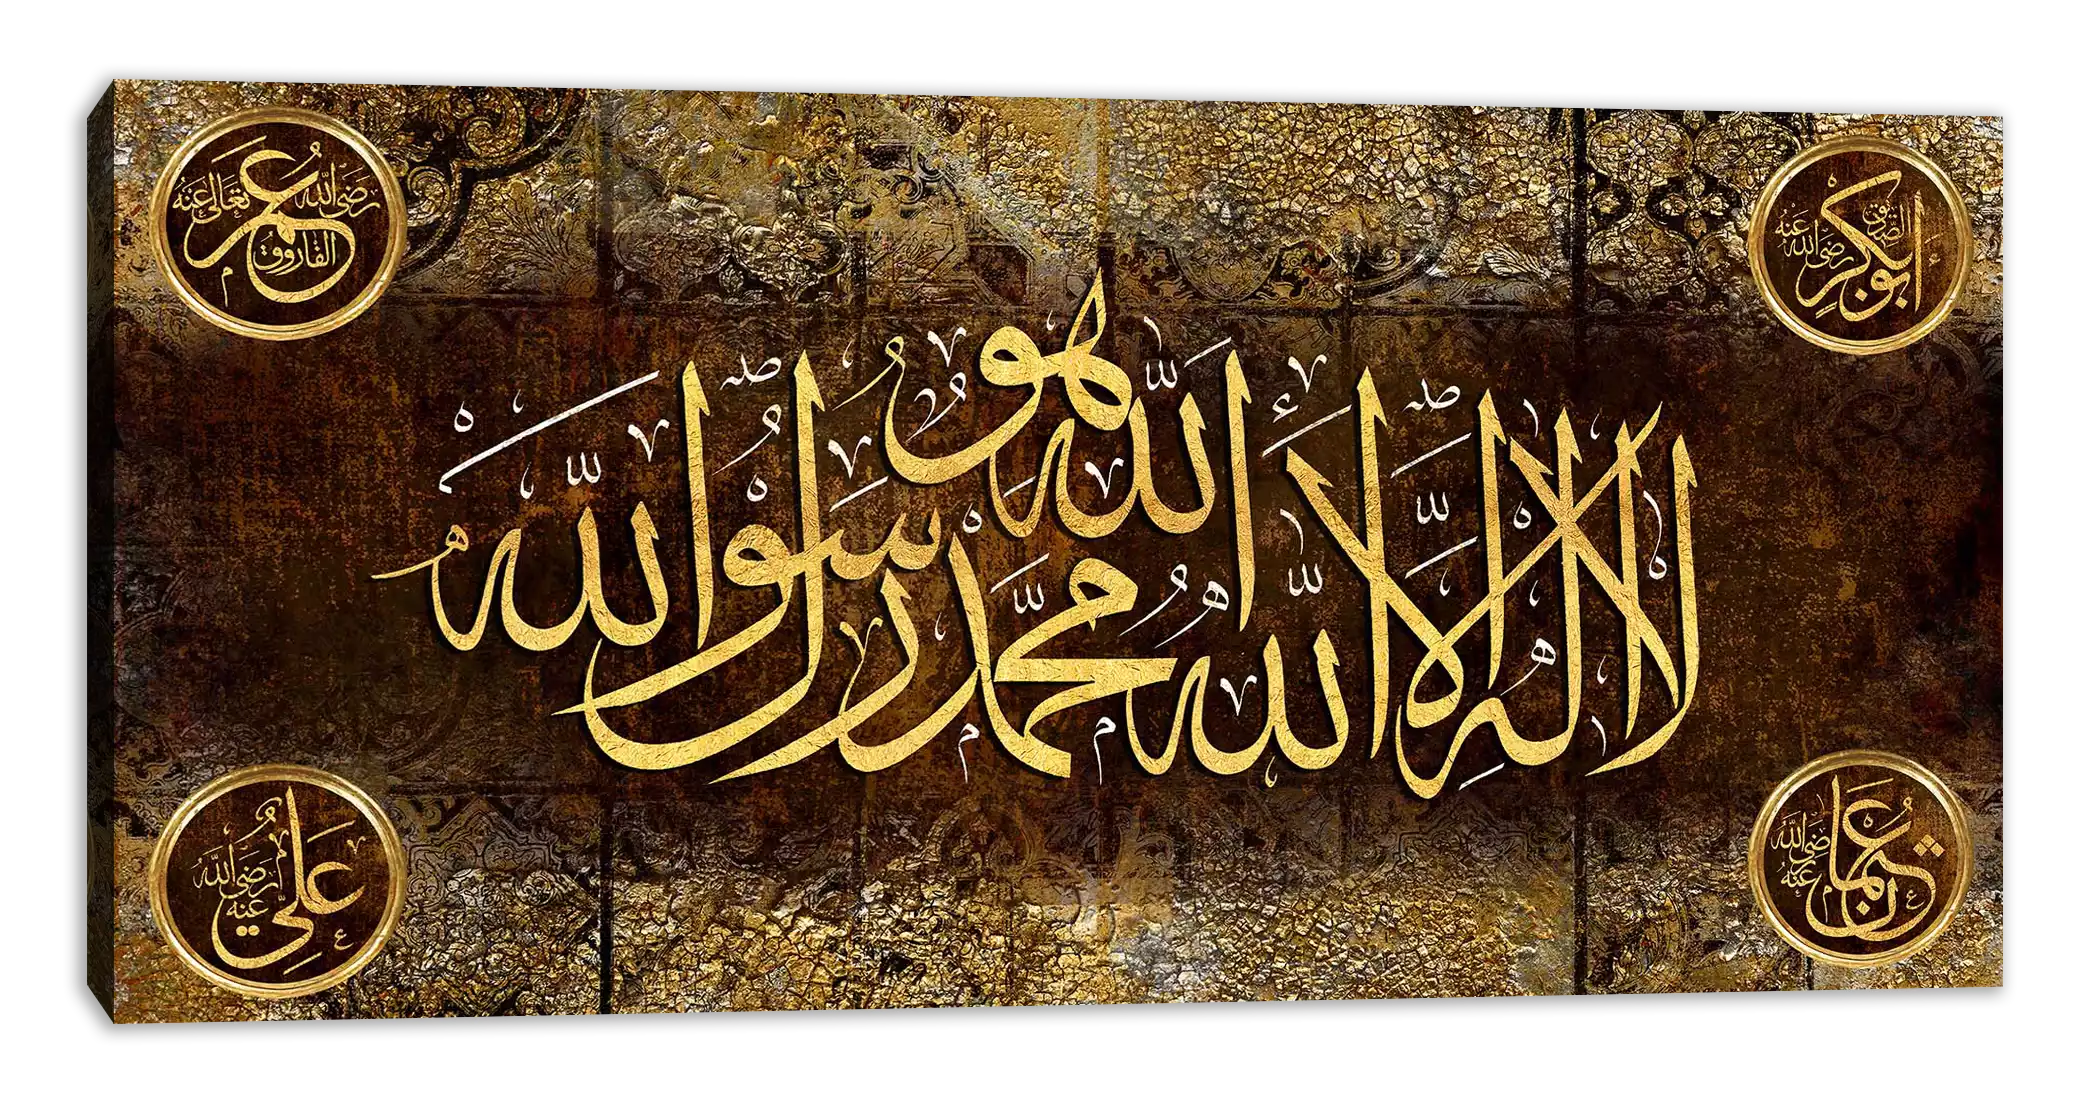 أبو بكر الصديق رضي الله عنه
عمر الفاروق رضي الله تعالى عنه
الله هو
لا إله إلا الله محمد رسول الله
عثمان رضي الله عنه
علي رضي الله عنه